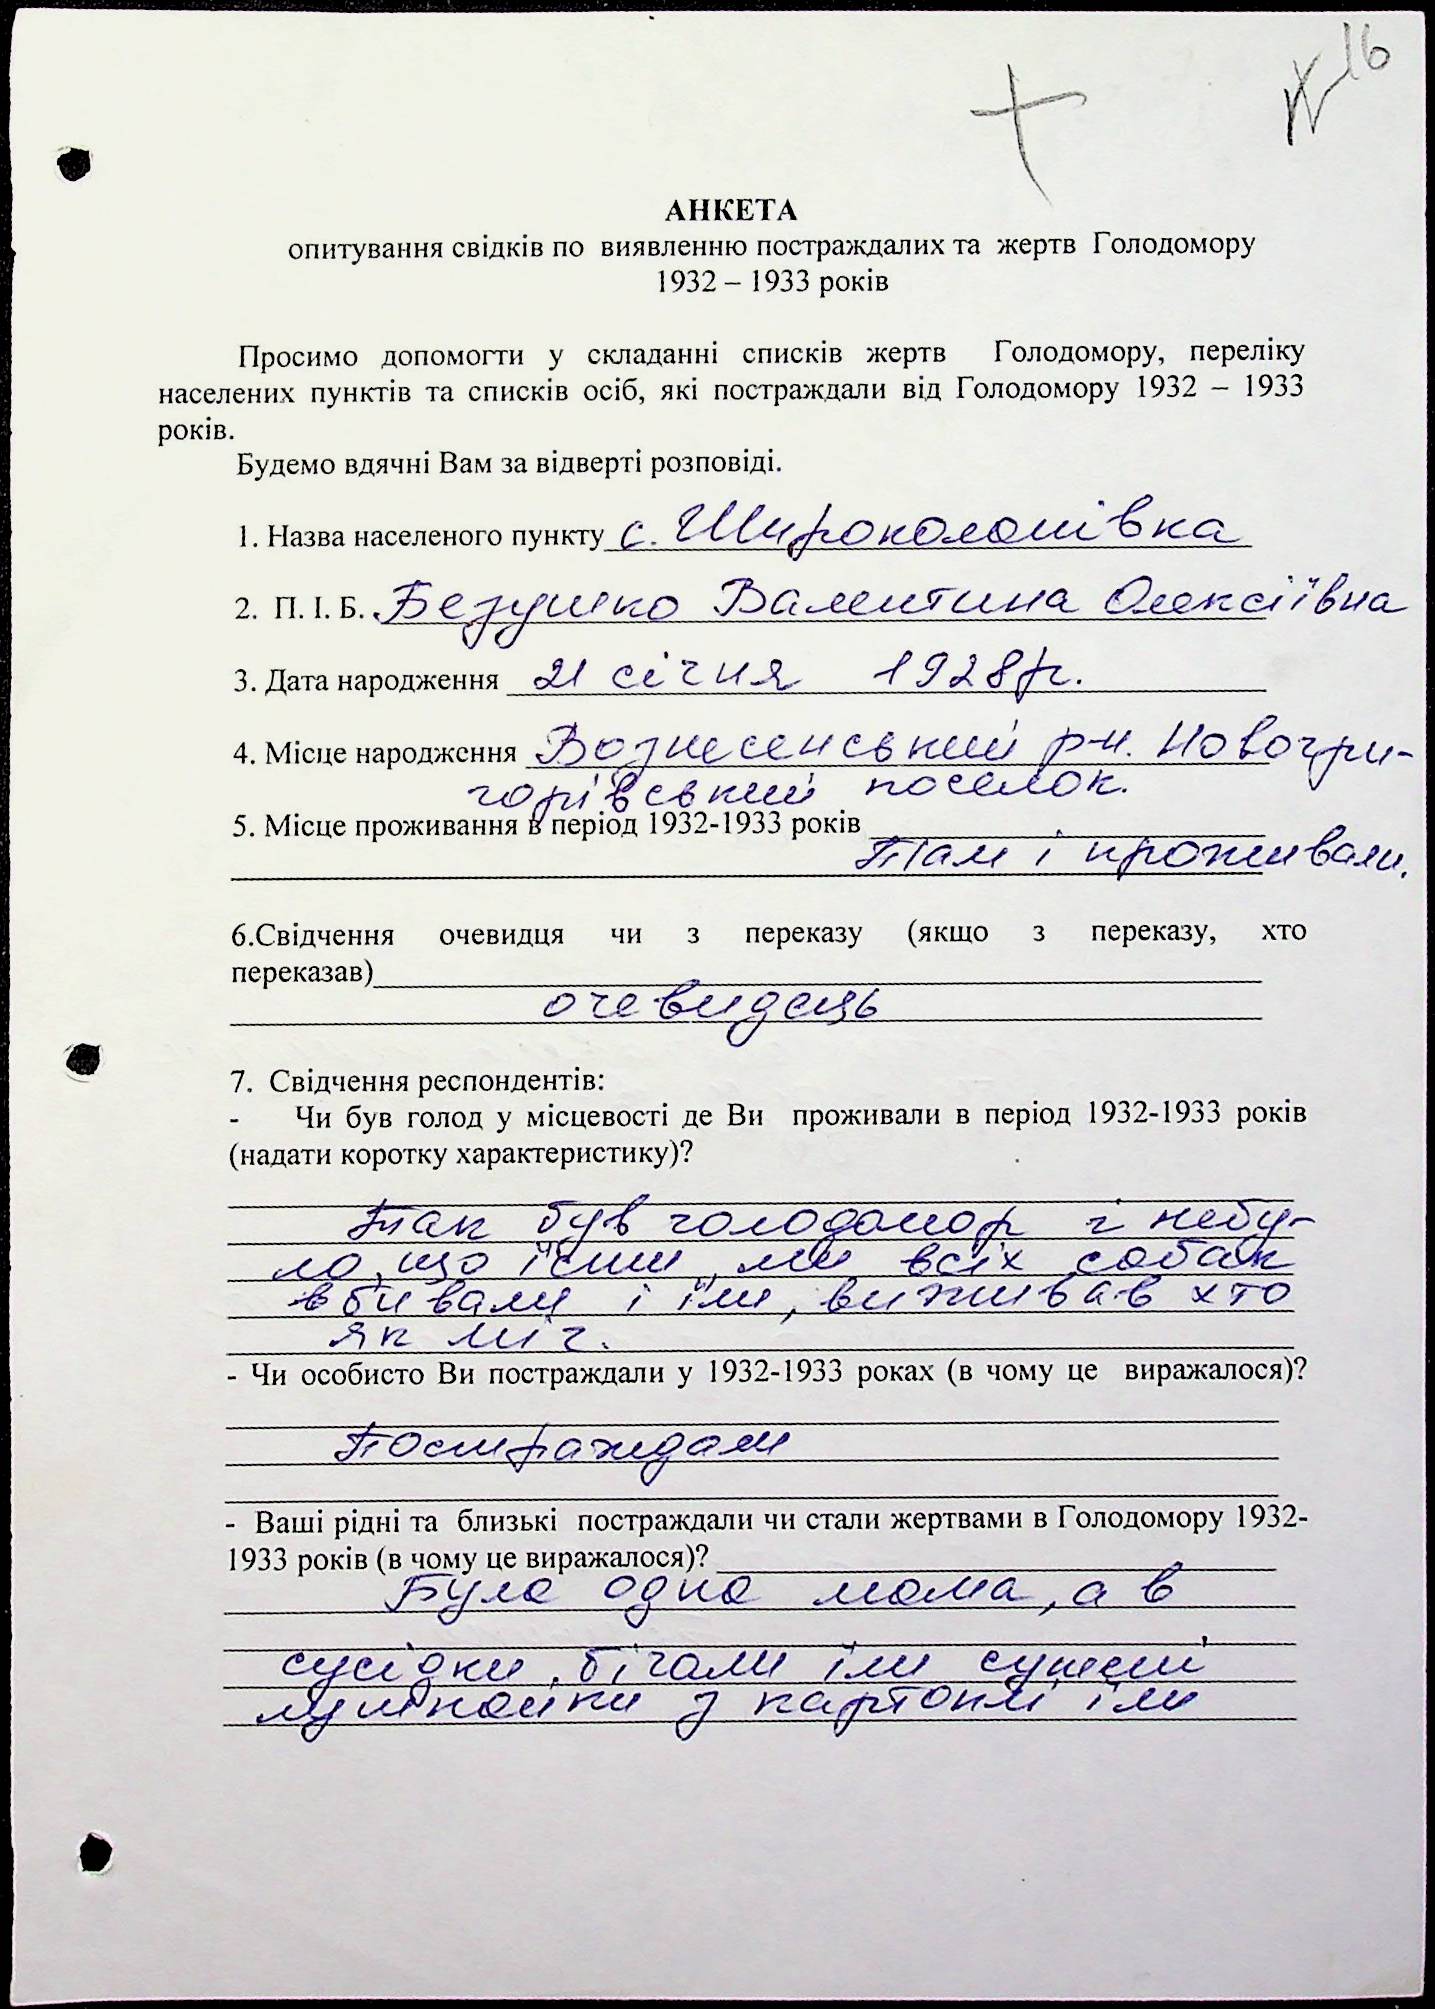 16
АНКЕТА
опитування свідків по виявленню постраждалих та жертв Голодомору
1932 – 1933 років
Просимо допомогти у складанні списків жертв Голодомору, переліку
населених пунктів та списків осіб, які постраждали від Голодомору 1932 – 1933
років.
Будемо вдячні Вам за відверті розповіді.
1. Назва населеного пункту с. Широколанівка
2. П. І. Б. Безушко Валентина Олексіївна
3. Дата народження 21 січня 1928 р.
4. Місце народження Вознесенський р-н. Новогри-
горівський поселок.
5. Місце проживання в період 1932-1933 років
Там і проживали.
6.Свідчення очевидця чи з переказу (якщо з переказу, хто
переказав)
очевидець
7. Свідчення респондентів:
- Чи був голод у місцевості де Ви проживали в період 1932-1933 років
(надати коротку характеристику)?
Так був голодомор і небу-
ло, що їсти, ми всіх собак
вбивали і їли, виживав хто
як міг.
- Чи особисто Ви постраждали у 1932-1933 роках (в чому це виражалося)?
Постраждали
- Ваші рідні та близькі постраждали чи стали жертвами в Голодомору 1932-
1933 років (в чому це виражалося)?
Була одна мама, а в
сусідки бігали їли сушені
лушпайки з картоплі їли